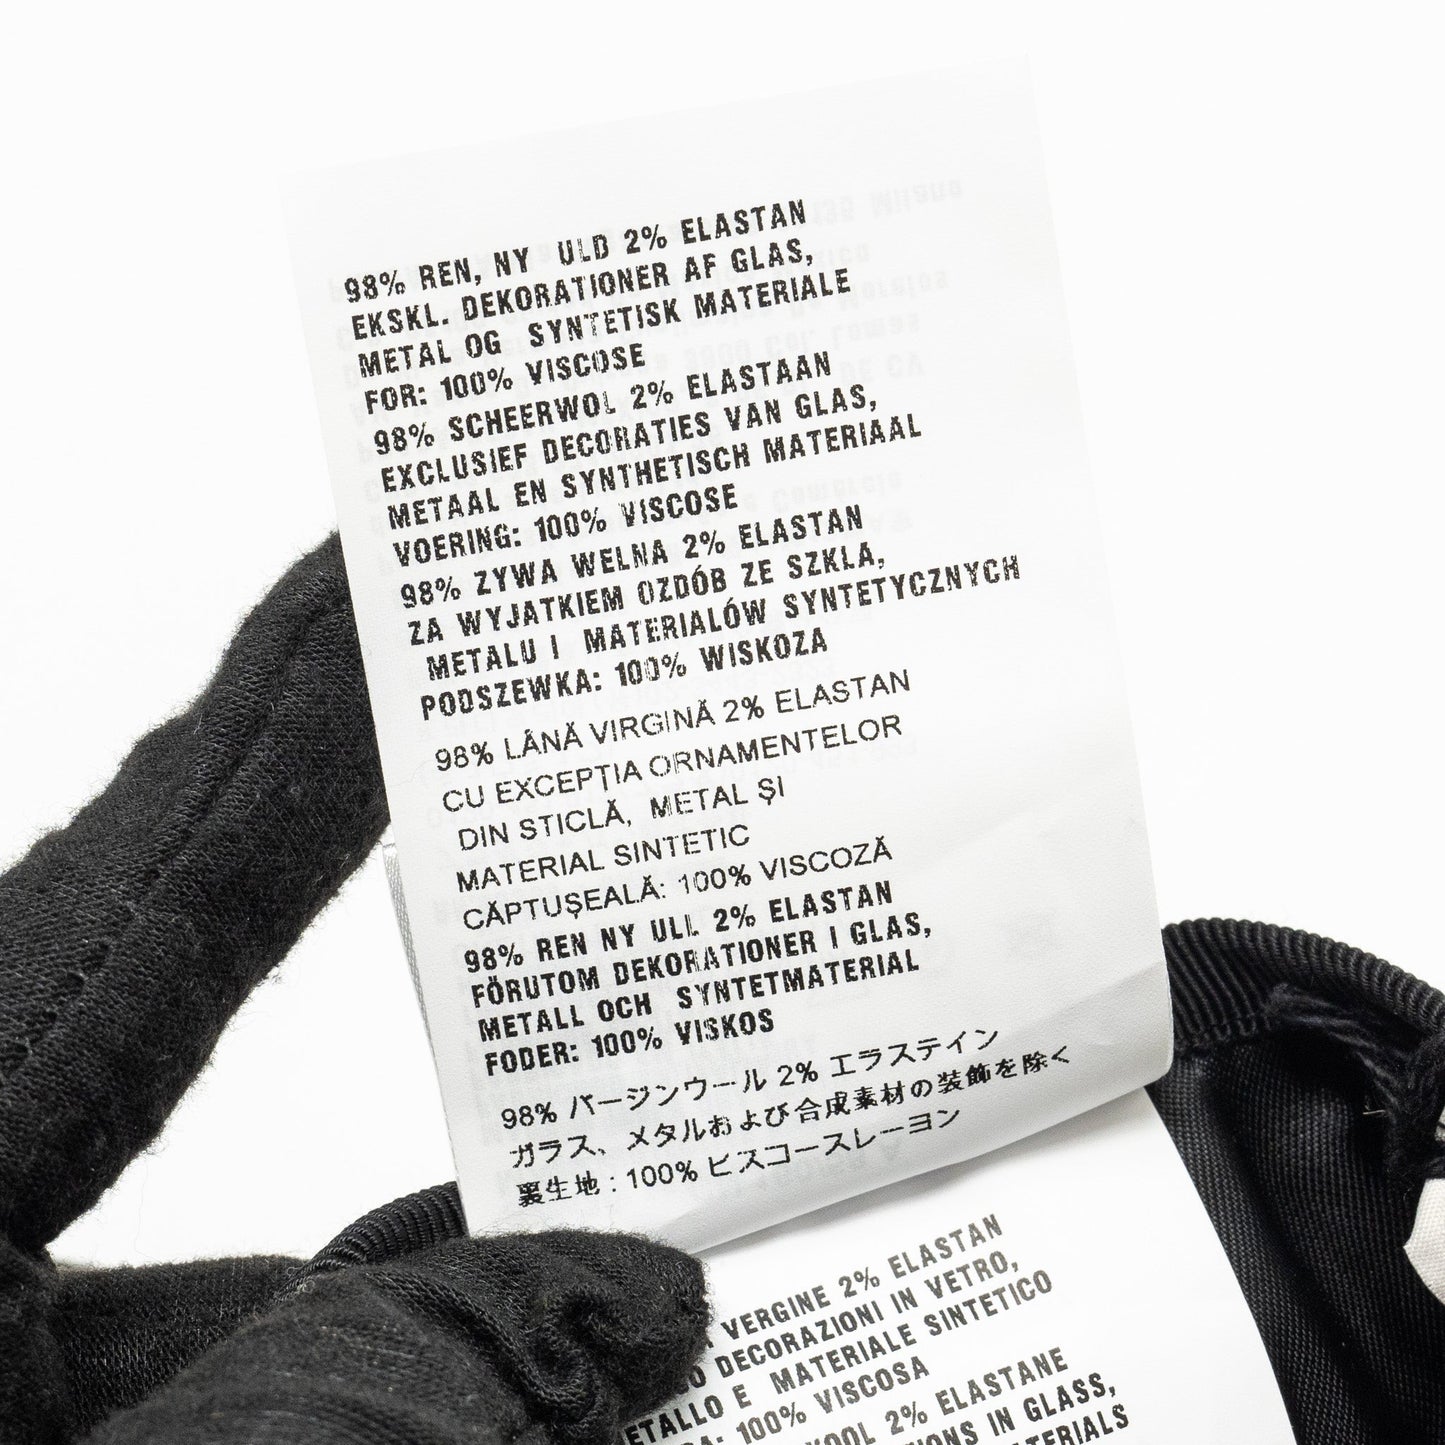 98% REN, NY ULD 2% ELASTAN
EKSKL. DEKORATIONER AF GLAS,
METAL OG SYNTETISK MATERIALE
FOR: 100% VISCOSE
98% SCHEERWOL 2% ELASTAAN
EXCLUSIEF DECORATIES VAN GLAS,
METAAL EN SYNTHETISCH MATERIAAL
VOERING: 100% VISCOSE
98% ZYWA WELNA 2% ELASTAN
ZA WYJATKIEM OZDÓB ZE SZKLA,
METALU I MATERIALÓW SYNTETYCZNYCH
PODSZEWKA: 100% WISKOZA
98% LÂNĂ VIRGINĂ 2% ELASTAN
CU EXCEPȚIA ORNAMENTELOR
DIN STICLĂ, METAL ȘI
MATERIAL SINTETIC
CĂPTUȘEALĂ: 100% VISCOZĂ
98% REN NY ULL 2% ELASTAN
FÖRUTOM DEKORATIONER I GLAS,
METALL OCH SYNTETMATERIAL
FODER: 100% VISKOS
98% バージンウール 2% エラステイン
ガラス、メタルおよび合成素材の装飾を除く
裏生地 : 100% ビスコースレーヨン
VERGINE 2% ELASTAN
DECORAZIONI IN VETRO,
E MATERIALE SINTETICO
100% VISCOSA
2% ELASTANE
IN GLASS,